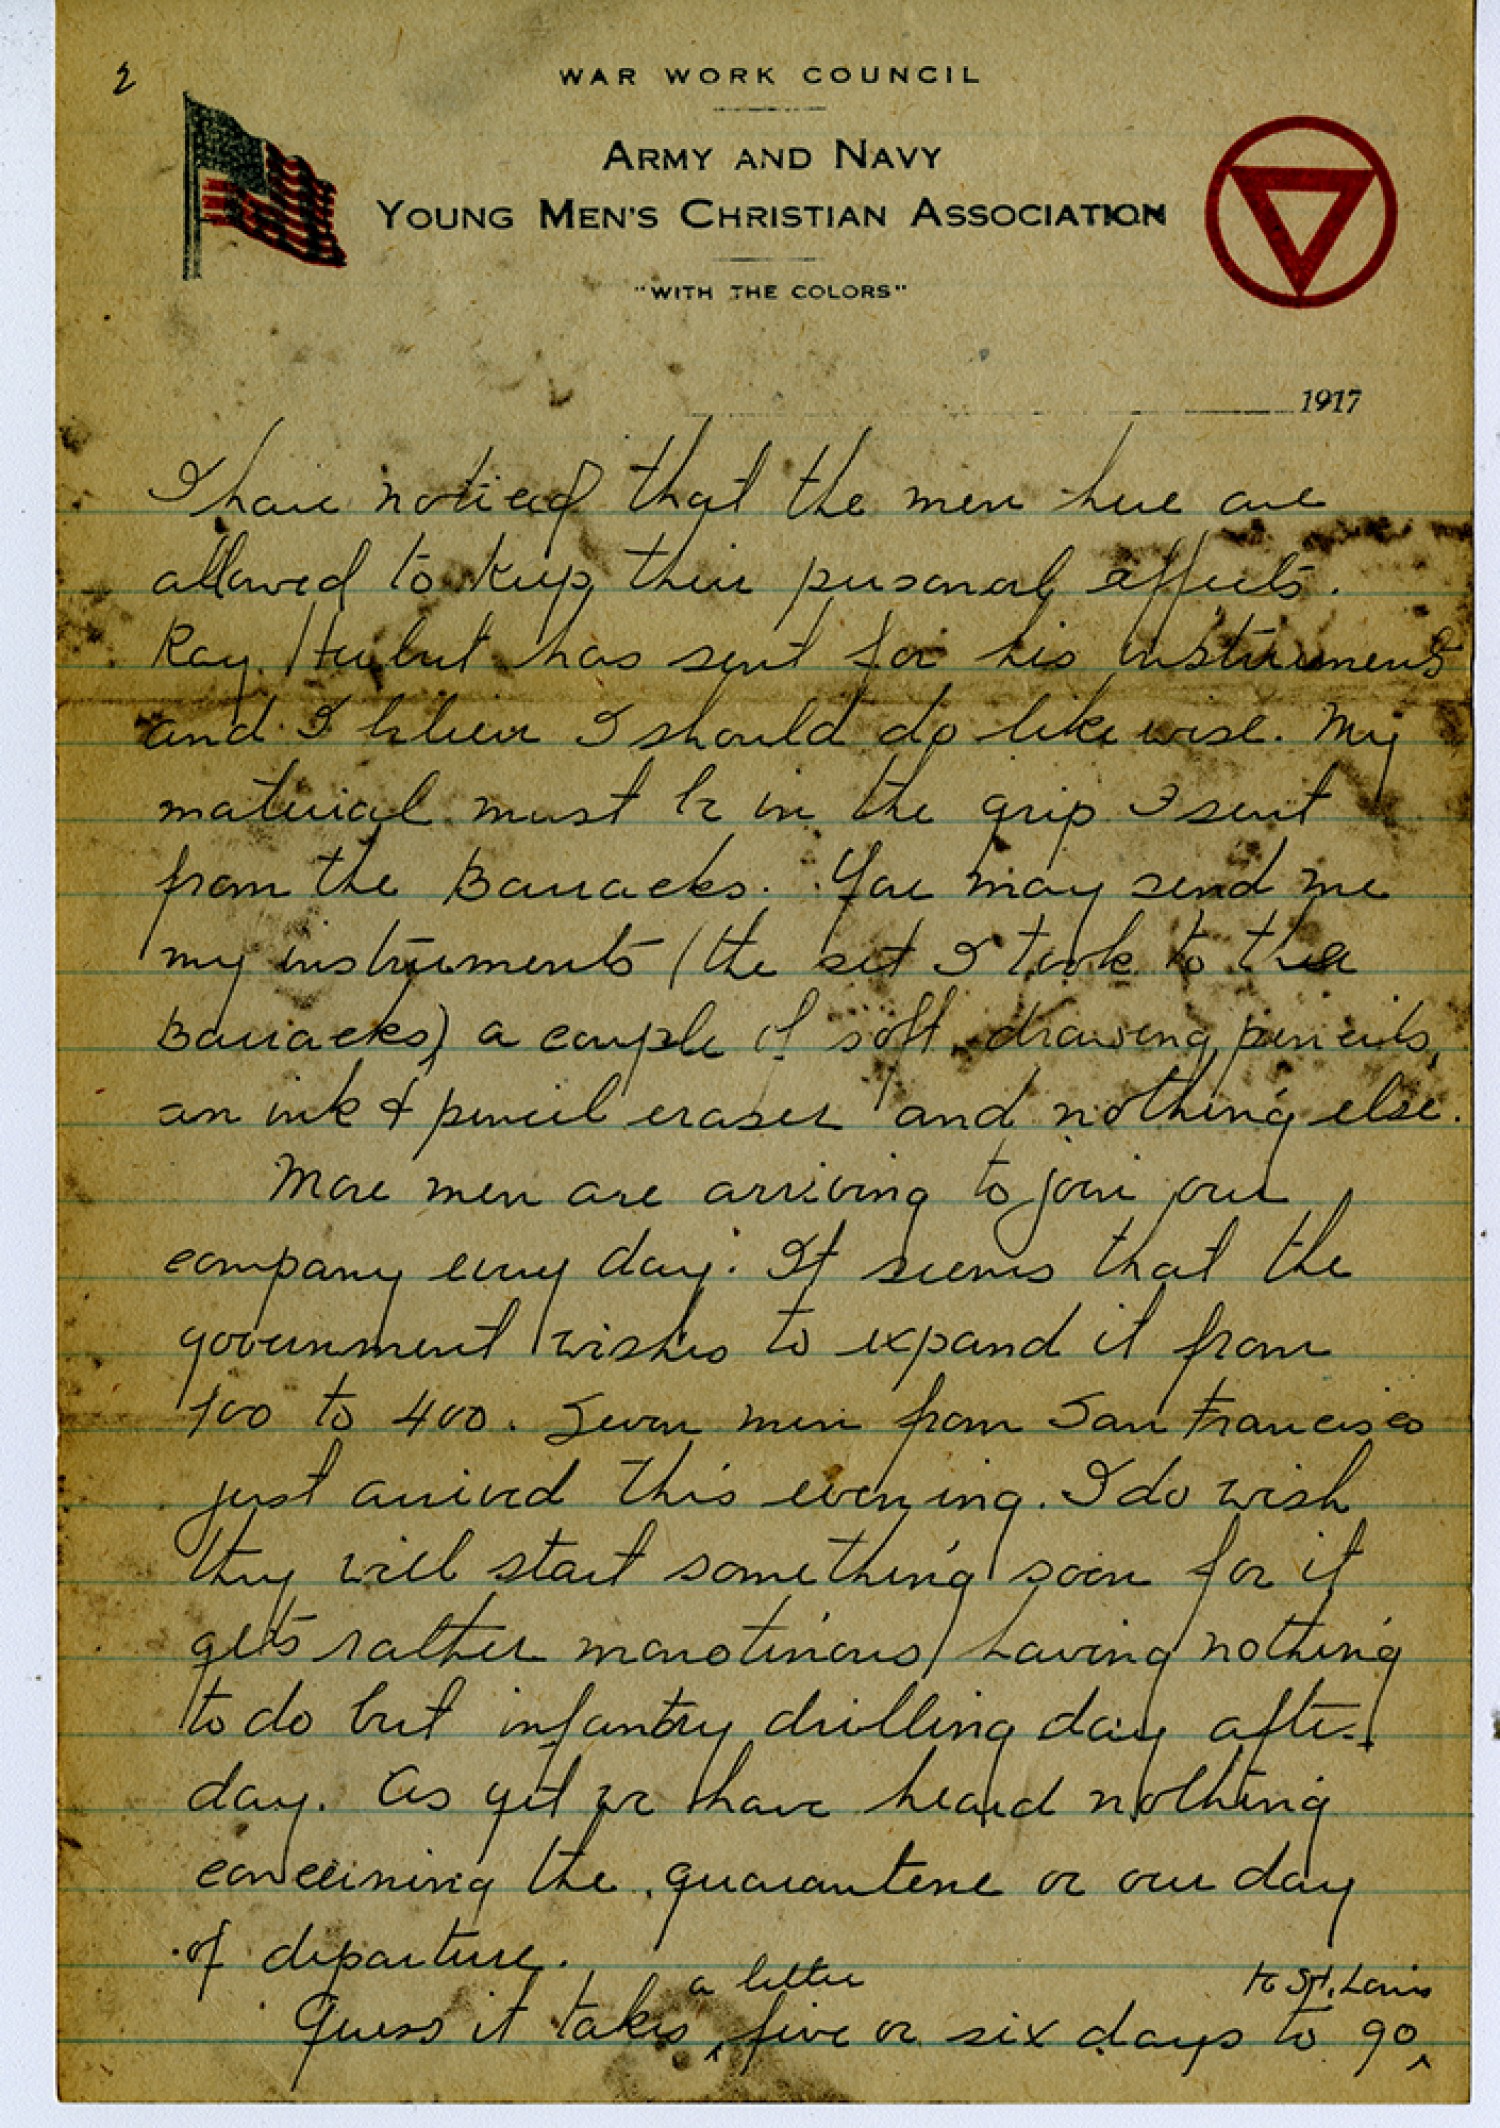 2
WAR WORK COUNCIL
ARMY AND NAVY
YOUNG MEN'S CHRISTIAN ASSOCIATION
"WITH THE COLORS"
1917
I have noticed that the men here are
allowed to keep their personal effects.
Ray has sent for his instruments
and I believe I should do likewise. My
material must be in the grip I sent
from the Barracks. You may send me
my instruments (the set I took to the
Barracks) a couple of soft drawing pencils,
an ink & pencil eraser and nothing else.
More men are arriving to join our
company every day. It seems that the
government wishes to expand it from
100 to 400. Seven men from San Francisco
just arrived this evening. I do wish
they will start something soon for it
gets rather monotinous having nothing
to do but infantry drilling day after
day. As yet we have heard nothing
concerning the quarantene or our day
of departure.
Guess it takes a letter five or six days to go to St. Louis